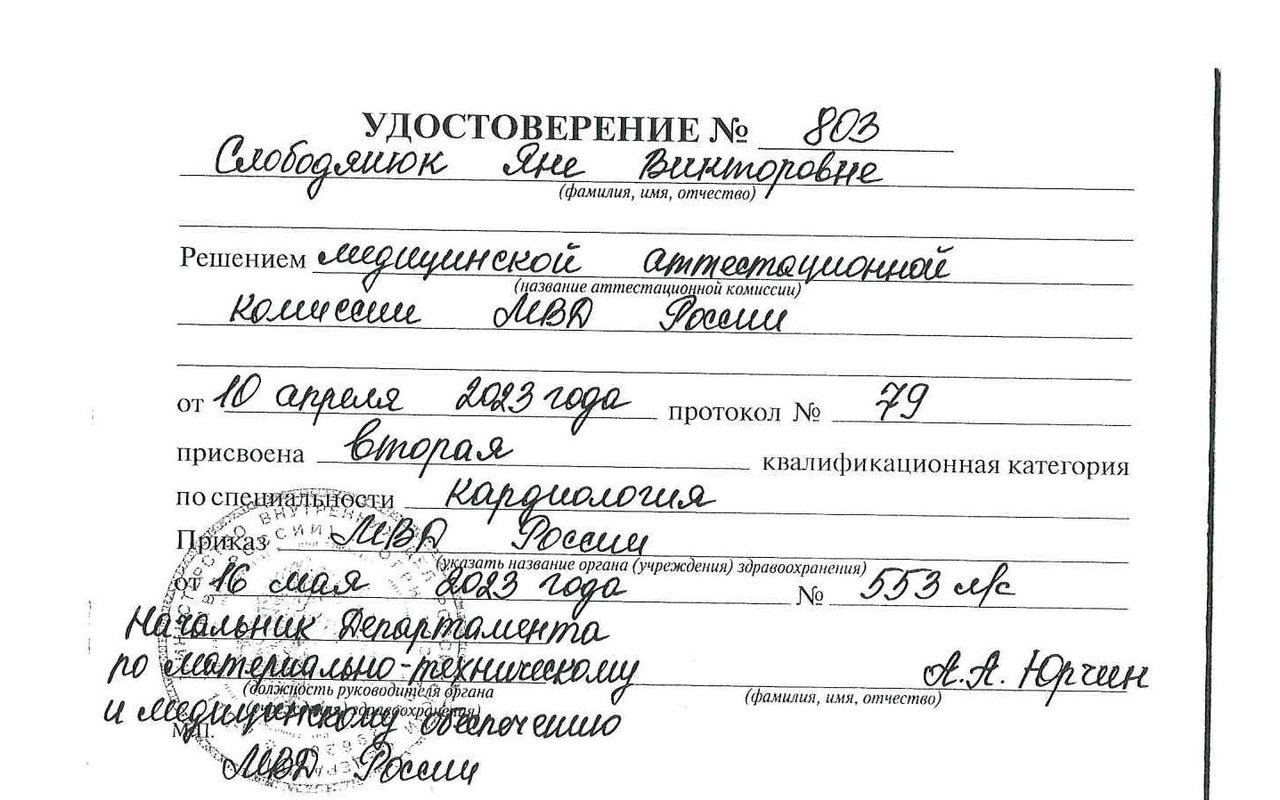 УДОСТОВЕРЕНИЕ № 803
Слободянюк Яне Викторовне
(фамилия, имя, отчество)
Решением медицинской аттестационной
(название аттестационной комиссии)
комиссии МВД России
от 10 апреля 2023 года протокол № 79
присвоена вторая квалификационная категория
по специальности кардиология
Приказ МВД России
(указать название органа (учреждения) здравоохранения)
от 16 мая 2023 года № 553 л/с
Начальник Департамента
по материально-техническому А.А. Юрчин
(должность руководителя органа (фамилия, имя, отчество)
(учреждения) здравоохранения)
и медицинскому обеспечению
М.П.
МВД России